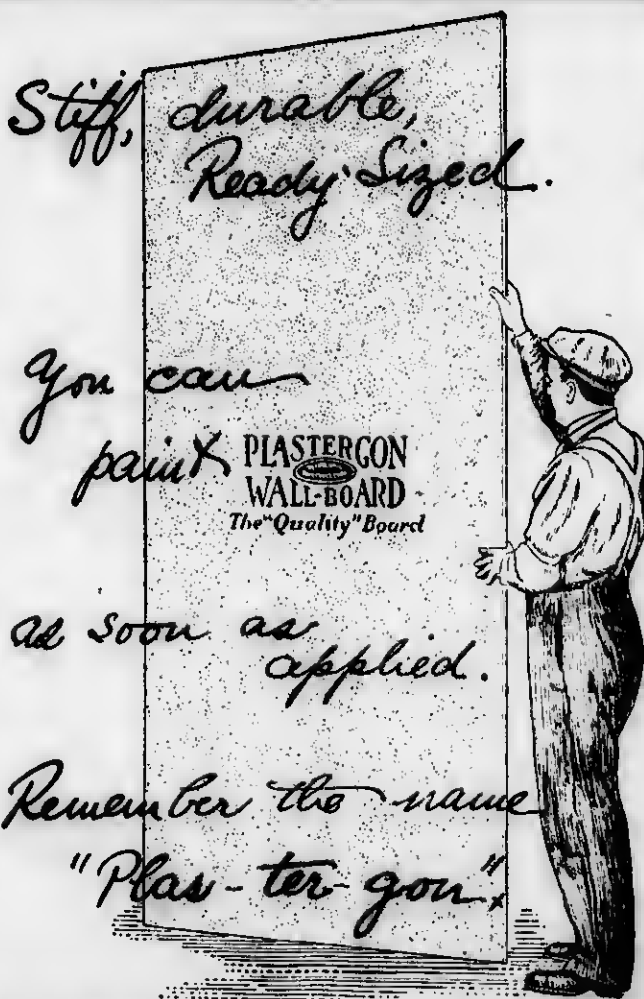 Stiff, durable,
Ready-Sized.
You can
paint PLASTERGON
WALL-BOARD
The "Quality" Board
as soon as
applied.
Remember the name
"Plas-ter-gon".